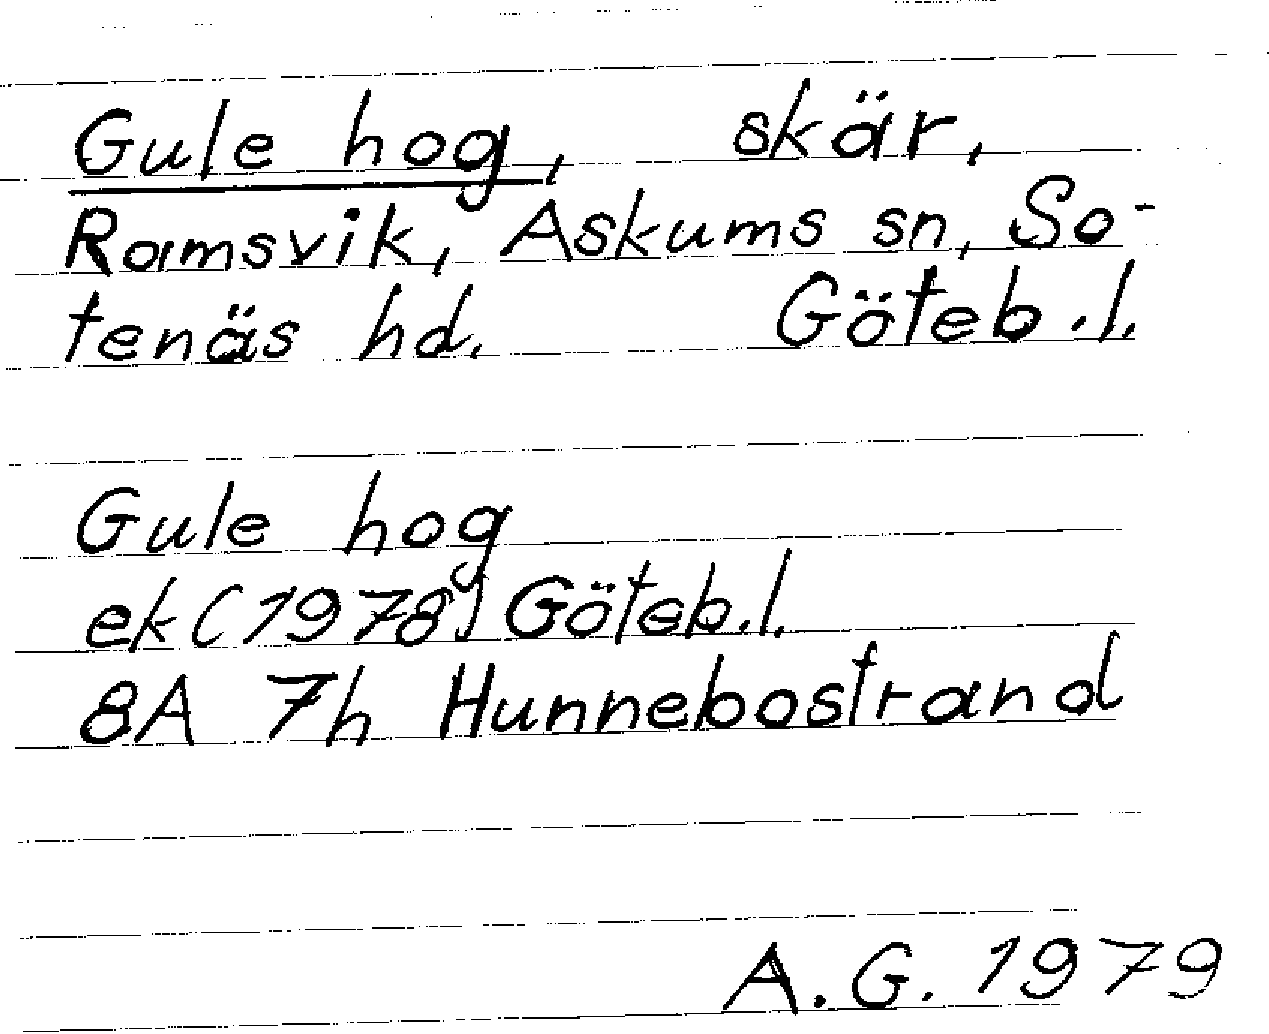 Gule hog, skär,
Ramsvik, Askums sn, So-
tenäs hd. Göteb.l.
Gule hog
ek (1978) Göteb.l.
8A 7h Hunnebostrand
A.G. 1979